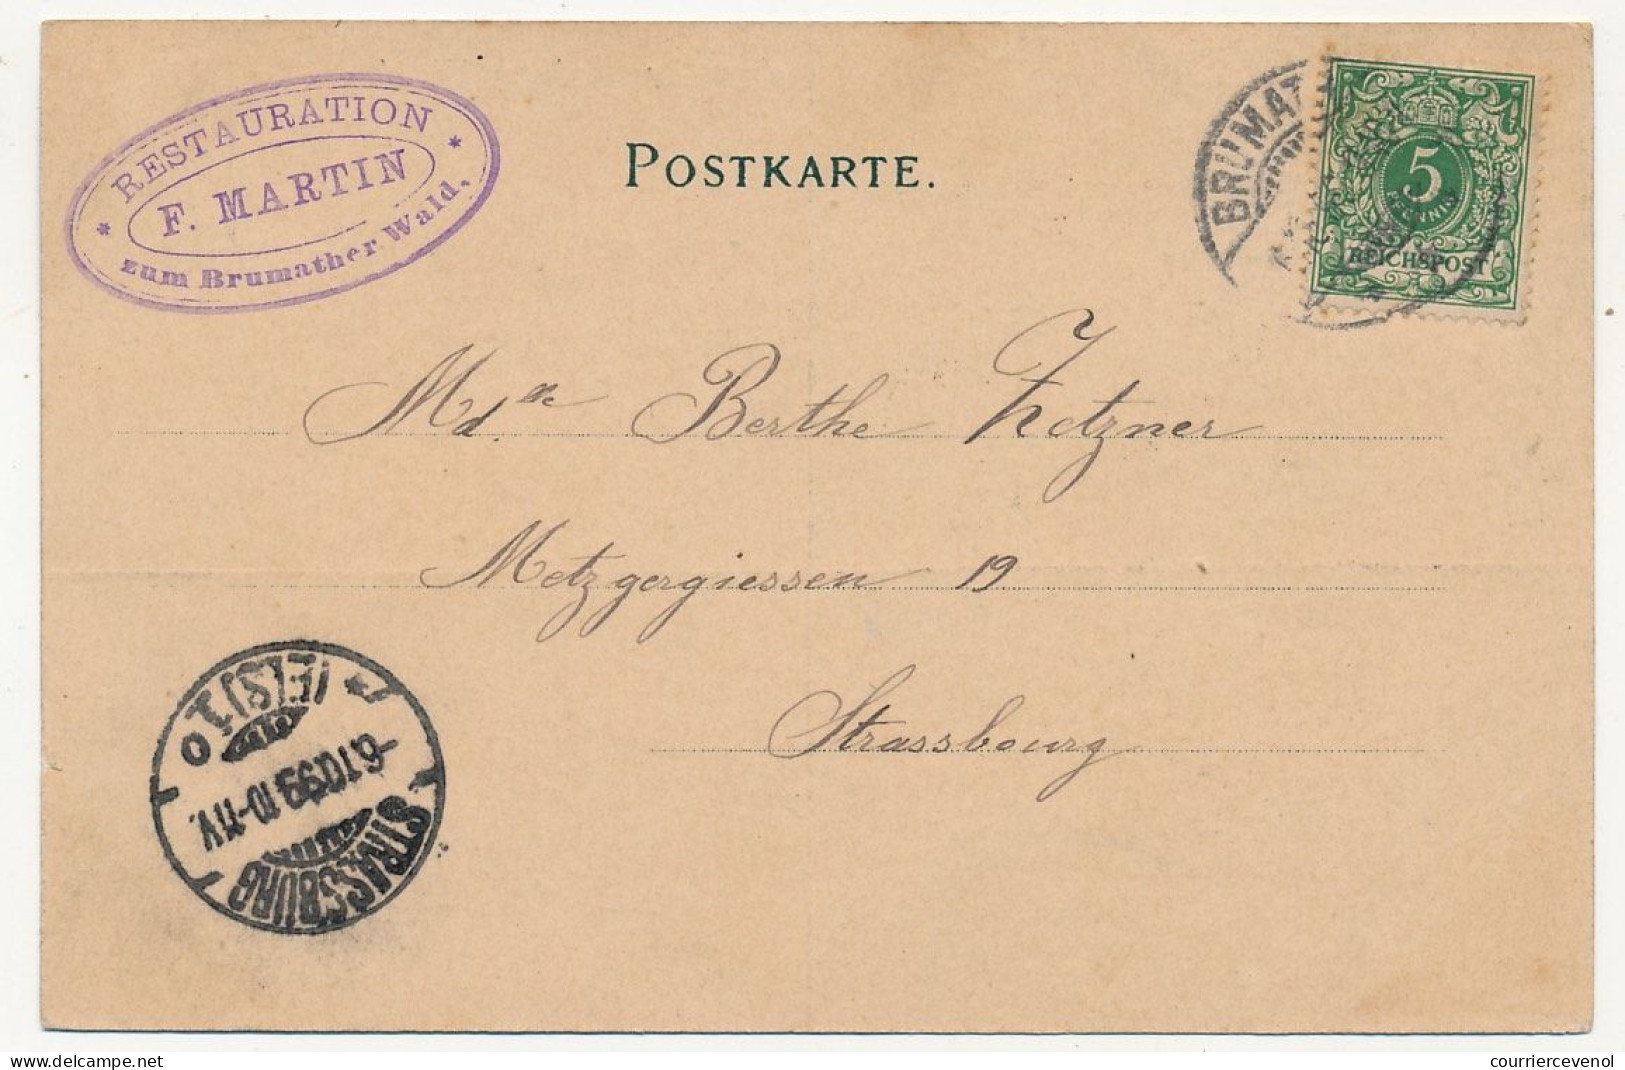 * RESTAURATION *
F. MARTIN
zum Brumather Wald.
POSTKARTE.
BRUMAT
5
PFENNIG
REICHSPOST
Md.lle Berthe Zetzner
Metzgergiessen 19
Strassbourg
STRASSBURG
-6.10.99.10-11V.
* (ELS) 1 o
courriercevenol